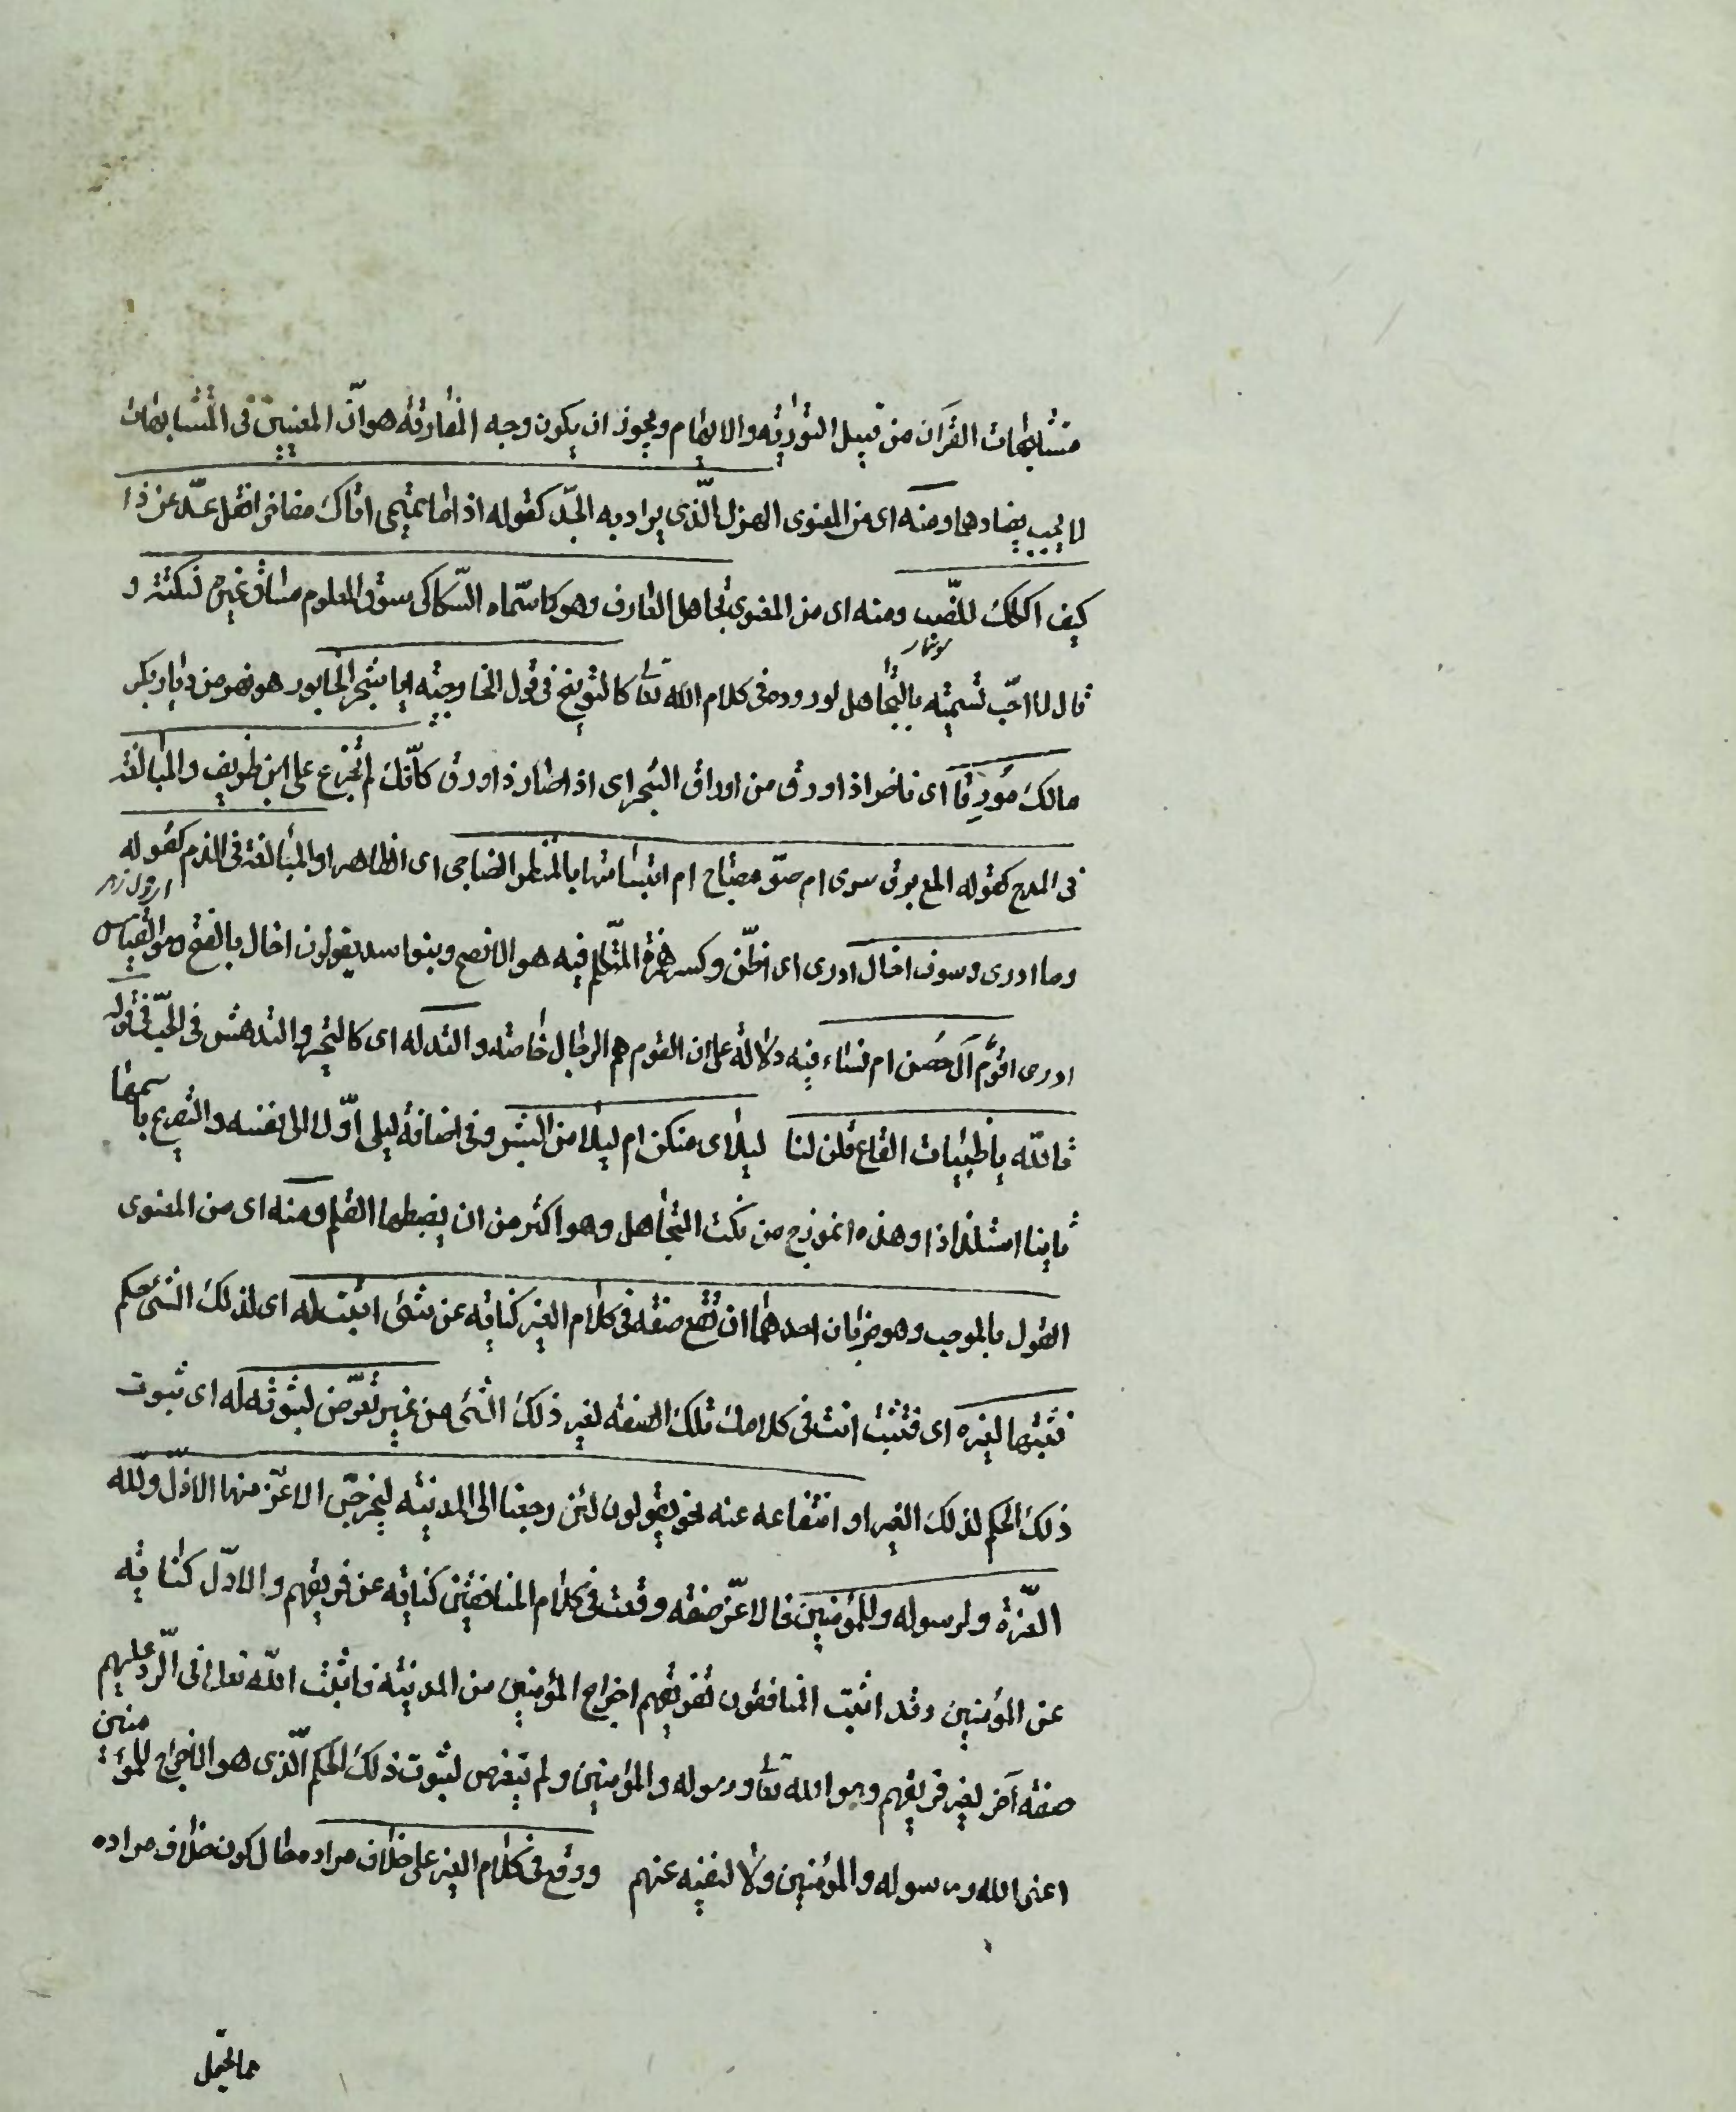 متشابهات القرآن من قبيل التورية والايهام ويجوز ان يكون وجه المفارقة هو انّ المعنيين في المتشابهات
لا يجب تضادهما ومنه اى من المعنوى الهزل الّذى يراد به الجدّ كقوله اذا ما تميمى اتاك مفاخرا فقل عدّ عن ذا
كيف اكلك للضب ومنه اى من المعنوى تجاهل العارف وهو كما سمّاه السّكاكى سوق المعلوم مساق غيره لنكتة و
قال لا احبّ تسميته بالتجاهل لوروده فى كلام الله تعا كالتوبيخ فى قول الخارجيّة ايا شجر الخابور هو نهر من ديار بكر
مالك مُورِقا اى ناضرا ذا ورق من اوراق الشجر اى اذا صار ذا ورق كأنّك لم تجزع على ابن طريف والمبالغة
فى المدح كقوله المع برق سرى ام ضوّ مصباح ام ابتسامتها بالمنظر الضاحى اى الظاهر او المبالغة فى الذم كقوله
وما ادرى وسوف اخال ادرى اى اظنّ وكسر همزة المتكلّم فيه هو الافصح وبنو اسد يقولون اخال بالفتح وهو القياس
ادرى اقومٌ آل حصن ام نساء فيه دلالة على ان القوم هم الرجال خاصة والتدله اى كالتحير والتدهش فى الحبّ فى قوله
فالله يا ظبيات القاع قلن لنا ليلاى منكن ام ليلا من البشر وفى اضافة ليلى اوّلا الى نفسه والتصريح باسمها
ثانيا استلذاذا وهذه انموذج من نكت التجاهل وهو اكثر من ان يضبطها القلم ومنه اى من المعنوى
القول بالموجب وهو ضربان احدهما ان تقع صفة فى كلام الغير كناية عن شئ اثبت له اى لذلك الشئ حكم
فتثبتها لغيره اى فتثبت انت فى كلامك تلك الصفة لغير ذلك الشئ من غير تعرّض لثبوته له اى ثبوت
ذلك الحكم لذلك الغير او انتفاعه عنه نحو يقولون لئن رجعنا الى المدينة ليخرجنّ الاعزّ منها الاذلّ ولله
العزّة ولرسوله وللمؤمنين فالاعزّ صفة وقعت فى كلام المنافقين كناية عن فريقهم والاذلّ كناية
عن المؤمنين وقد اثبت المنافقون لفريقهم اخراج المؤمنين من المدينة فاثبت الله تعالى فى الرّد عليهم
صفة آخر لغير فريقهم وهو الله تعا ورسوله والمؤمنين ولم يتعرض لثبوت ذلك الحكم الّذى هو الاخراج للمؤمنين
اعنى الله ورسوله والمؤمنين ولا لنفيه عنهم ووقع فى كلام الغير على خلاف مراده حال كون خلاف مراده
مما يحتمل